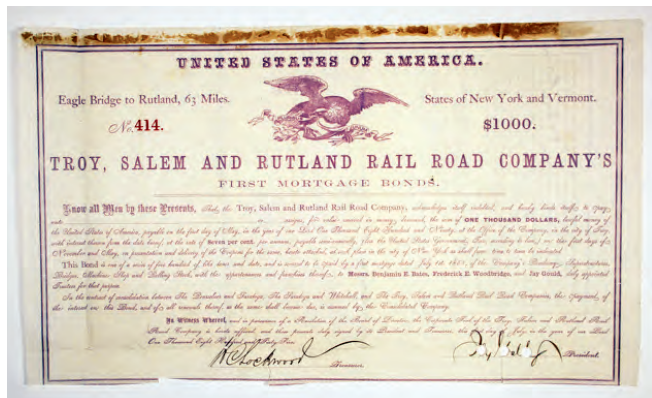 UNITED STATES OF AMERICA.
Eagle Bridge to Rutland, 63 Miles.
States of New York and Vermont.
No. 414.
$1000.
TROY, SALEM AND RUTLAND RAIL ROAD COMPANY'S
FIRST MORTGAGE BONDS.
Know all Men by these Presents, That the Troy, Salem and Rutland Rail Road Company, acknowledges itself indebted, and hereby binds itself, to pay
or assigns, for value received in money loaned, the sum of ONE THOUSAND DOLLARS, lawful money of
the United States of America, payable on the first day of May, in the year of our Lord One Thousand Eight Hundred and Ninety, at the Office of the Company, in the city of Troy,
with interest thereon from the date hereof, at the rate of Seven per cent. per annum, payable semi-annually, United States Government on the first days of
November and May, on presentation and delivery of the Coupon for the same, hereto attached, at in the city of New York
This Bond is one of a series of five hundred of the same and date, and is secured to be paid by a first mortgage, dated July 1st of the Company's Roadway, Superstructure,
Bridges, Machine Shop and Rolling Stock, with the appurtenances and franchises thereof, to Messrs. Benjamin E. Bates, Frederick E. Woodbridge, and Jay Gould, duly appointed
Trustees for that purpose.
In the contract of consolidation between The Rensselaer and Saratoga, The Saratoga and Whitehall, and The Troy, Salem and Rutland Rail Road Companies, the payment, of
the interest on this Bond, and of all issued, as the same shall become due, is assumed by the Consolidated Company.
In Witness Whereof, and in pursuance of a Resolution of the Board of Directors, the Corporate Seal of the Troy, Salem and Rutland Rail
Road Company is hereto affixed, and these presents duly signed by its President and Treasurer, the first day of July, in the year of our Lord
One Thousand Eight Hundred and Sixty Five.
Treasurer.
President.